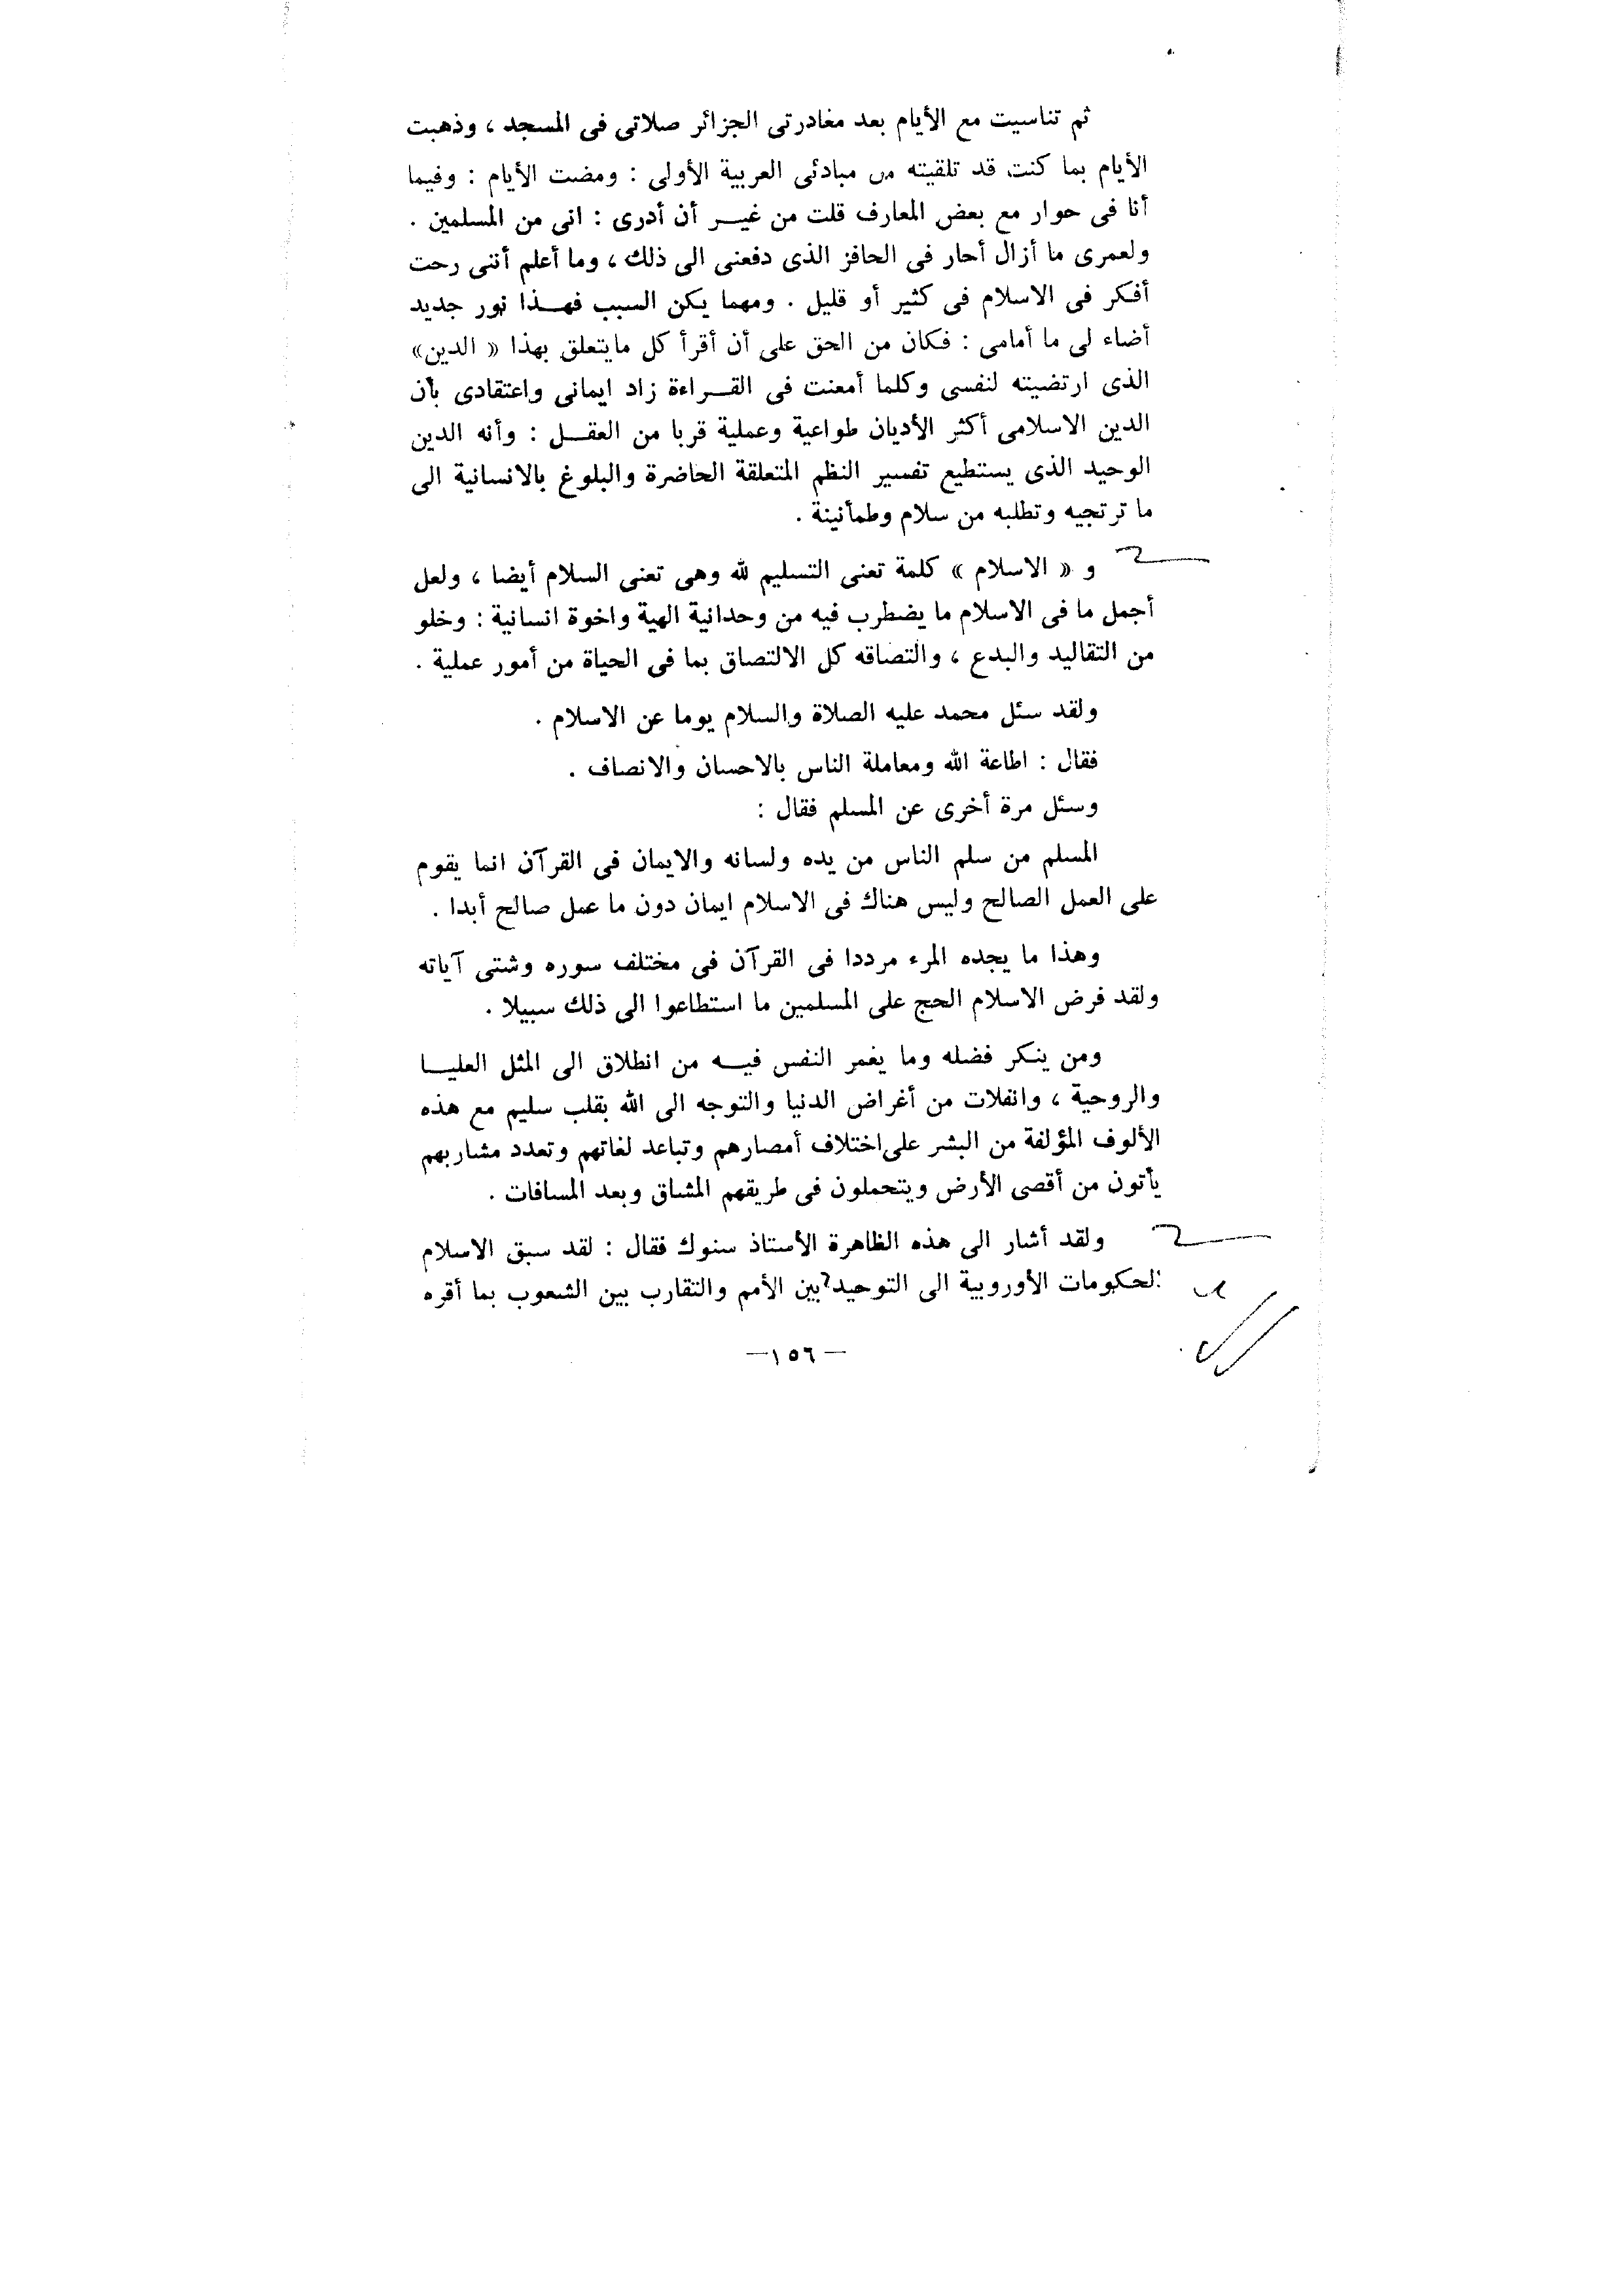 ثم تناسيت مع الأيام بعد مغادرتى الجزائر صلاتى فى المسجد ، وذهبت
الأيام بما كنت قد تلقيته من مبادئى العربية الأولى : ومضت الأيام : وفيما
أنا فى حوار مع بعض المعارف قلت من غيـــر أن أدرى : انى من المسلمين .
ولعمرى ما أزال أحار فى الحافز الذى دفعنى الى ذلك ، وما أعلم أننى رحت
أفكر فى الاسلام فى كثير أو قليل . ومهما يكن السبب فهــذا نور جديد
أضاء لى ما أمامى : فكان من الحق على أن أقرأ كل مايتعلق بهذا « الدين»
الذى ارتضيته لنفسى وكلما أمعنت فى القــراءة زاد ايمانى واعتقادى بأن
الدين الاسلامى أكثر الأديان طواعية وعملية قربا من العقــل : وأنه الدين
الوحيد الذى يستطيع تفسير النظم المتعلقة الحاضرة والبلوغ بالانسانية الى
ما ترتجيه وتطلبه من سلام وطمأنينة .
و « الاسلام » كلمة تعنى التسليم لله وهى تعنى السلام أيضا ، ولعل
أجمل ما فى الاسلام ما يضطرب فيه من وحدانية الهية واخوة انسانية : وخلو
من التقاليد والبدع ، والتصاقه كل الالتصاق بما فى الحياة من أمور عملية .
ولقد سئل محمد عليه الصلاة والسلام يوما عن الاسلام .
فقال : اطاعة الله ومعاملة الناس بالاحسان والانصاف .
وسئل مرة أخرى عن المسلم فقال :
المسلم من سلم الناس من يده ولسانه والايمان فى القرآن انما يقوم
على العمل الصالح وليس هناك فى الاسلام ايمان دون ما عمل صالح أبدا .
وهذا ما يجده المرء مرددا فى القرآن فى مختلف سوره وشتى آياته
ولقد فرض الاسلام الحج على المسلمين ما استطاعوا الى ذلك سبيلا .
ومن ينكر فضله وما يغمر النفس فيــه من انطلاق الى المثل العليــا
والروحية ، وانفلات من أغراض الدنيا والتوجه الى الله بقلب سليم مع هذه
الألوف المؤلفة من البشر على اختلاف أمصارهم وتباعد لغاتهم وتعدد مشاربهم
يأتون من أقصى الأرض ويتحملون فى طريقهم المشاق وبعد المسافات .
ولقد أشار الى هذه الظاهرة الأستاذ سنوك فقال : لقد سبق الاسلام
الحكومات الأوروبية الى التوحيد بين الأمم والتقارب بين الشعوب بما أقره
— ١٥٦ —